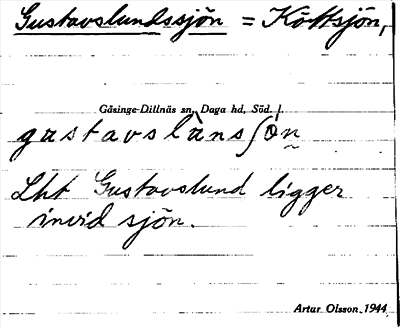 Gustavslundssjön = Kottsjön,
Gåsinge-Dillnäs sn, Daga hd, Söd. l.
gustavslànsʃön
Lht Gustavslund ligger
invid sjön.
Artur Olsson, 1944